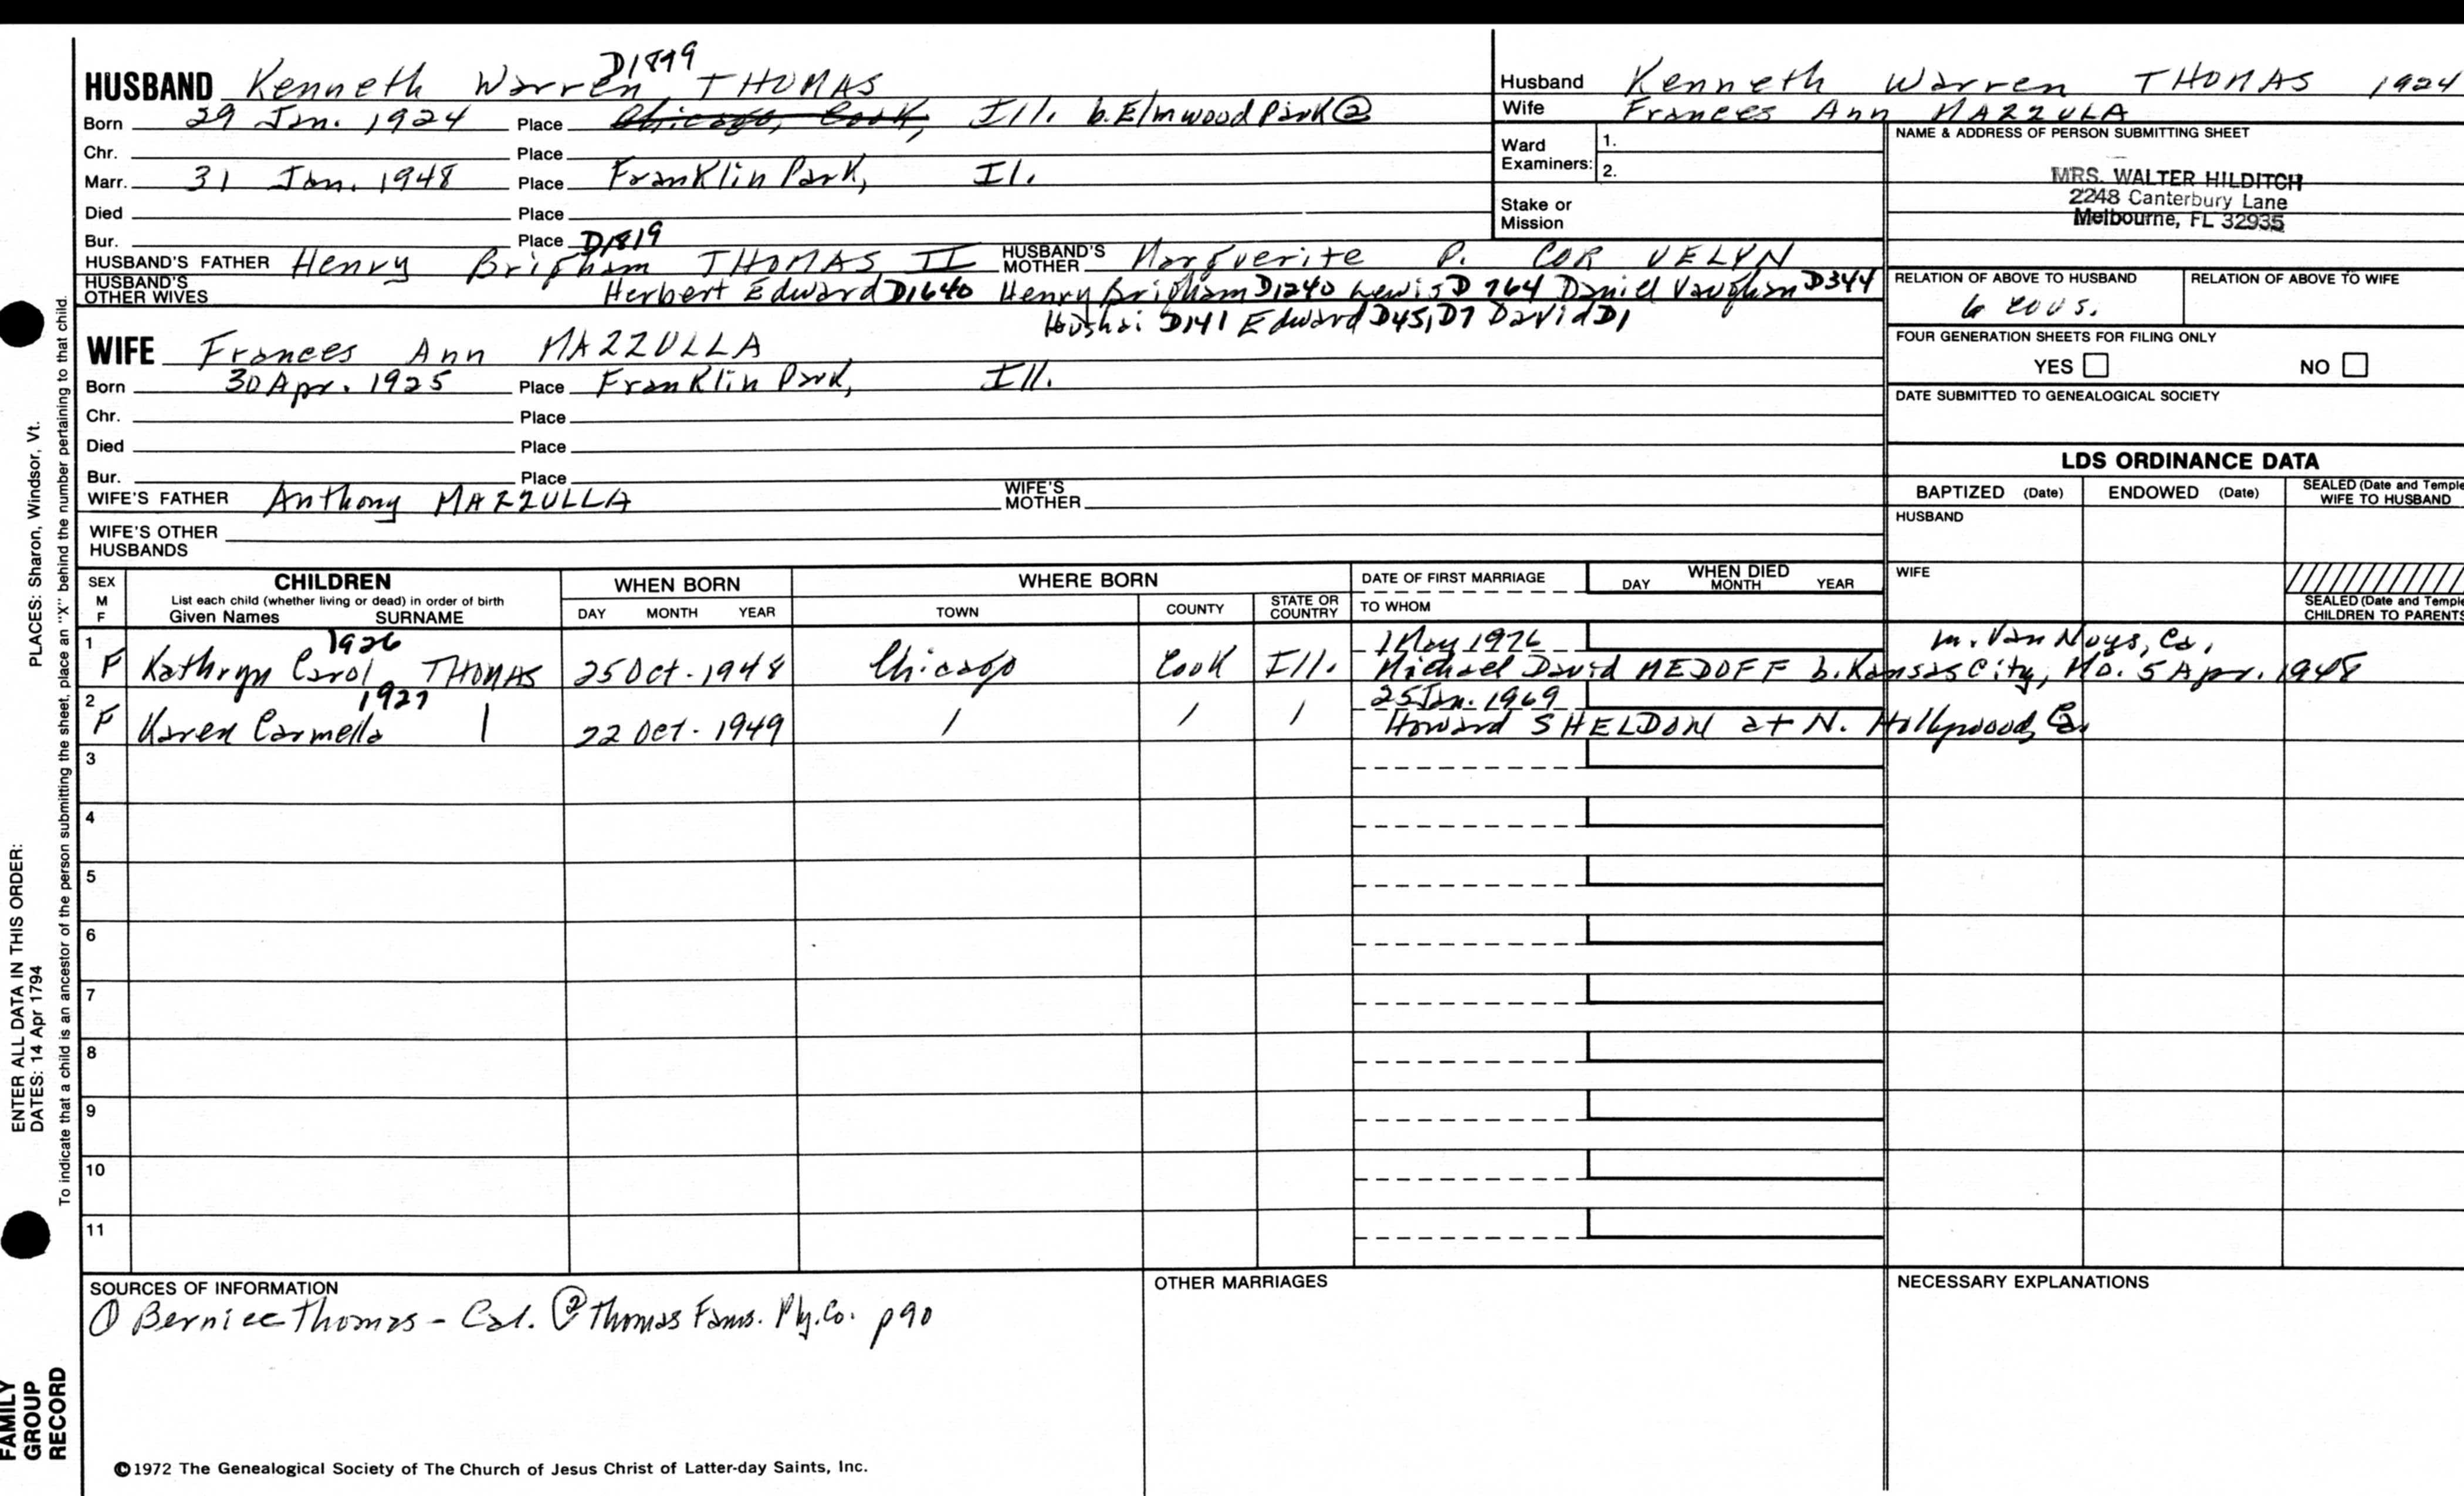 HUSBAND Kenneth Warren D1899 THOMAS
Born 29 Jan. 1924 Place Chicago, Cook, Ill. b. Elmwood Park ②
Chr. Place
Marr. 31 Jan. 1948 Place Franklin Park, Il.
Died Place
Bur. Place D1819
HUSBAND'S FATHER Henry Brigham THOMAS II HUSBAND'S MOTHER Marguerite P. COR VELYN
HUSBAND'S OTHER WIVES Herbert Edward D1640 Henry Brigham D1240 Lewis D764 Daniel Vaughan D344
Hushai D141 Edward D45, D7 David D1
WIFE Frances Ann MAZZULLA
Born 30 Apr. 1925 Place Franklin Park, Ill.
Chr. Place
Died Place
Bur. Place
WIFE'S FATHER Anthony MAZZULLA WIFE'S MOTHER
WIFE'S OTHER HUSBANDS
Husband Kenneth Warren THOMAS 1924
Wife Frances Ann MAZZULA
Ward Examiners: 1.
2.
Stake or Mission
NAME & ADDRESS OF PERSON SUBMITTING SHEET
MRS. WALTER HILDITCH
2248 Canterbury Lane
Melbourne, FL 32935
RELATION OF ABOVE TO HUSBAND RELATION OF ABOVE TO WIFE
6 cous.
FOUR GENERATION SHEETS FOR FILING ONLY
YES NO
DATE SUBMITTED TO GENEALOGICAL SOCIETY
LDS ORDINANCE DATA
BAPTIZED (Date) ENDOWED (Date) SEALED (Date and Temple) WIFE TO HUSBAND
HUSBAND
WIFE
SEALED (Date and Temple) CHILDREN TO PARENTS
SEX M F CHILDREN WHEN BORN WHERE BORN DATE OF FIRST MARRIAGE WHEN DIED
List each child (whether living or dead) in order of birth
Given Names SURNAME DAY MONTH YEAR TOWN COUNTY STATE OR COUNTRY TO WHOM DAY MONTH YEAR
1 1926 1 May 1976 m. Van Nuys, Ca.
F Kathryn Carol THOMAS 25 Oct. 1948 Chicago Cook Ill. Michael David MEDOFF b. Kansas City, Mo. 5 Apr. 1948
2 1927 25 Jan. 1969
F Karen Carmella | 22 Oct. 1949 / / / Howard SHELDON at N. Hollywood, Ca.
3
4
5
6
7
8
9
10
11
SOURCES OF INFORMATION OTHER MARRIAGES NECESSARY EXPLANATIONS
① Bernice Thomas - Cal. ② Thomas Fams. Ply. Co. p 90
©1972 The Genealogical Society of The Church of Jesus Christ of Latter-day Saints, Inc.
PLACES: Sharon, Windsor, Vt.
ENTER ALL DATA IN THIS ORDER:
DATES: 14 Apr 1794
To indicate that a child is an ancestor of the person submitting the sheet, place an "X" behind the number pertaining to that child.
FAMILY
GROUP
RECORD